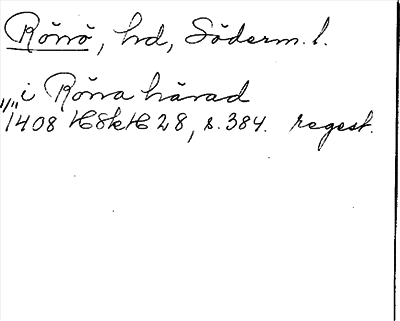 Rönö, hd, Söderm. l.
i Röna härad
1408 HSkH 28, s. 384. regest.